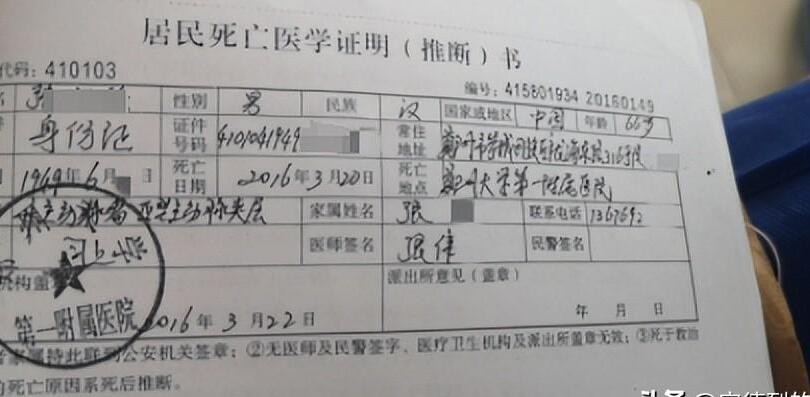 居民死亡医学证明（推断）书
代码：410103
编号：415801934 20160149
张 性别 男 民族 汉 国家或地区 中国 年龄 66岁
身份证 证件号码 4101041949 常住地址
1969年6月 日 死亡日期 2016年3月20日 死亡地点 郑州大学第一附属医院
主动脉夹层 家属姓名 张 联系电话 1367692
同上 医师签名 张伟 民警签名
机构盖 派出所意见（盖章）
第一附属医院 2016年3月22日 年 月 日
家属持此联到公安机关签章；②无医师及民警签字、医疗卫生机构及派出所盖章无效；③死于救治
的死亡原因系死后推断。